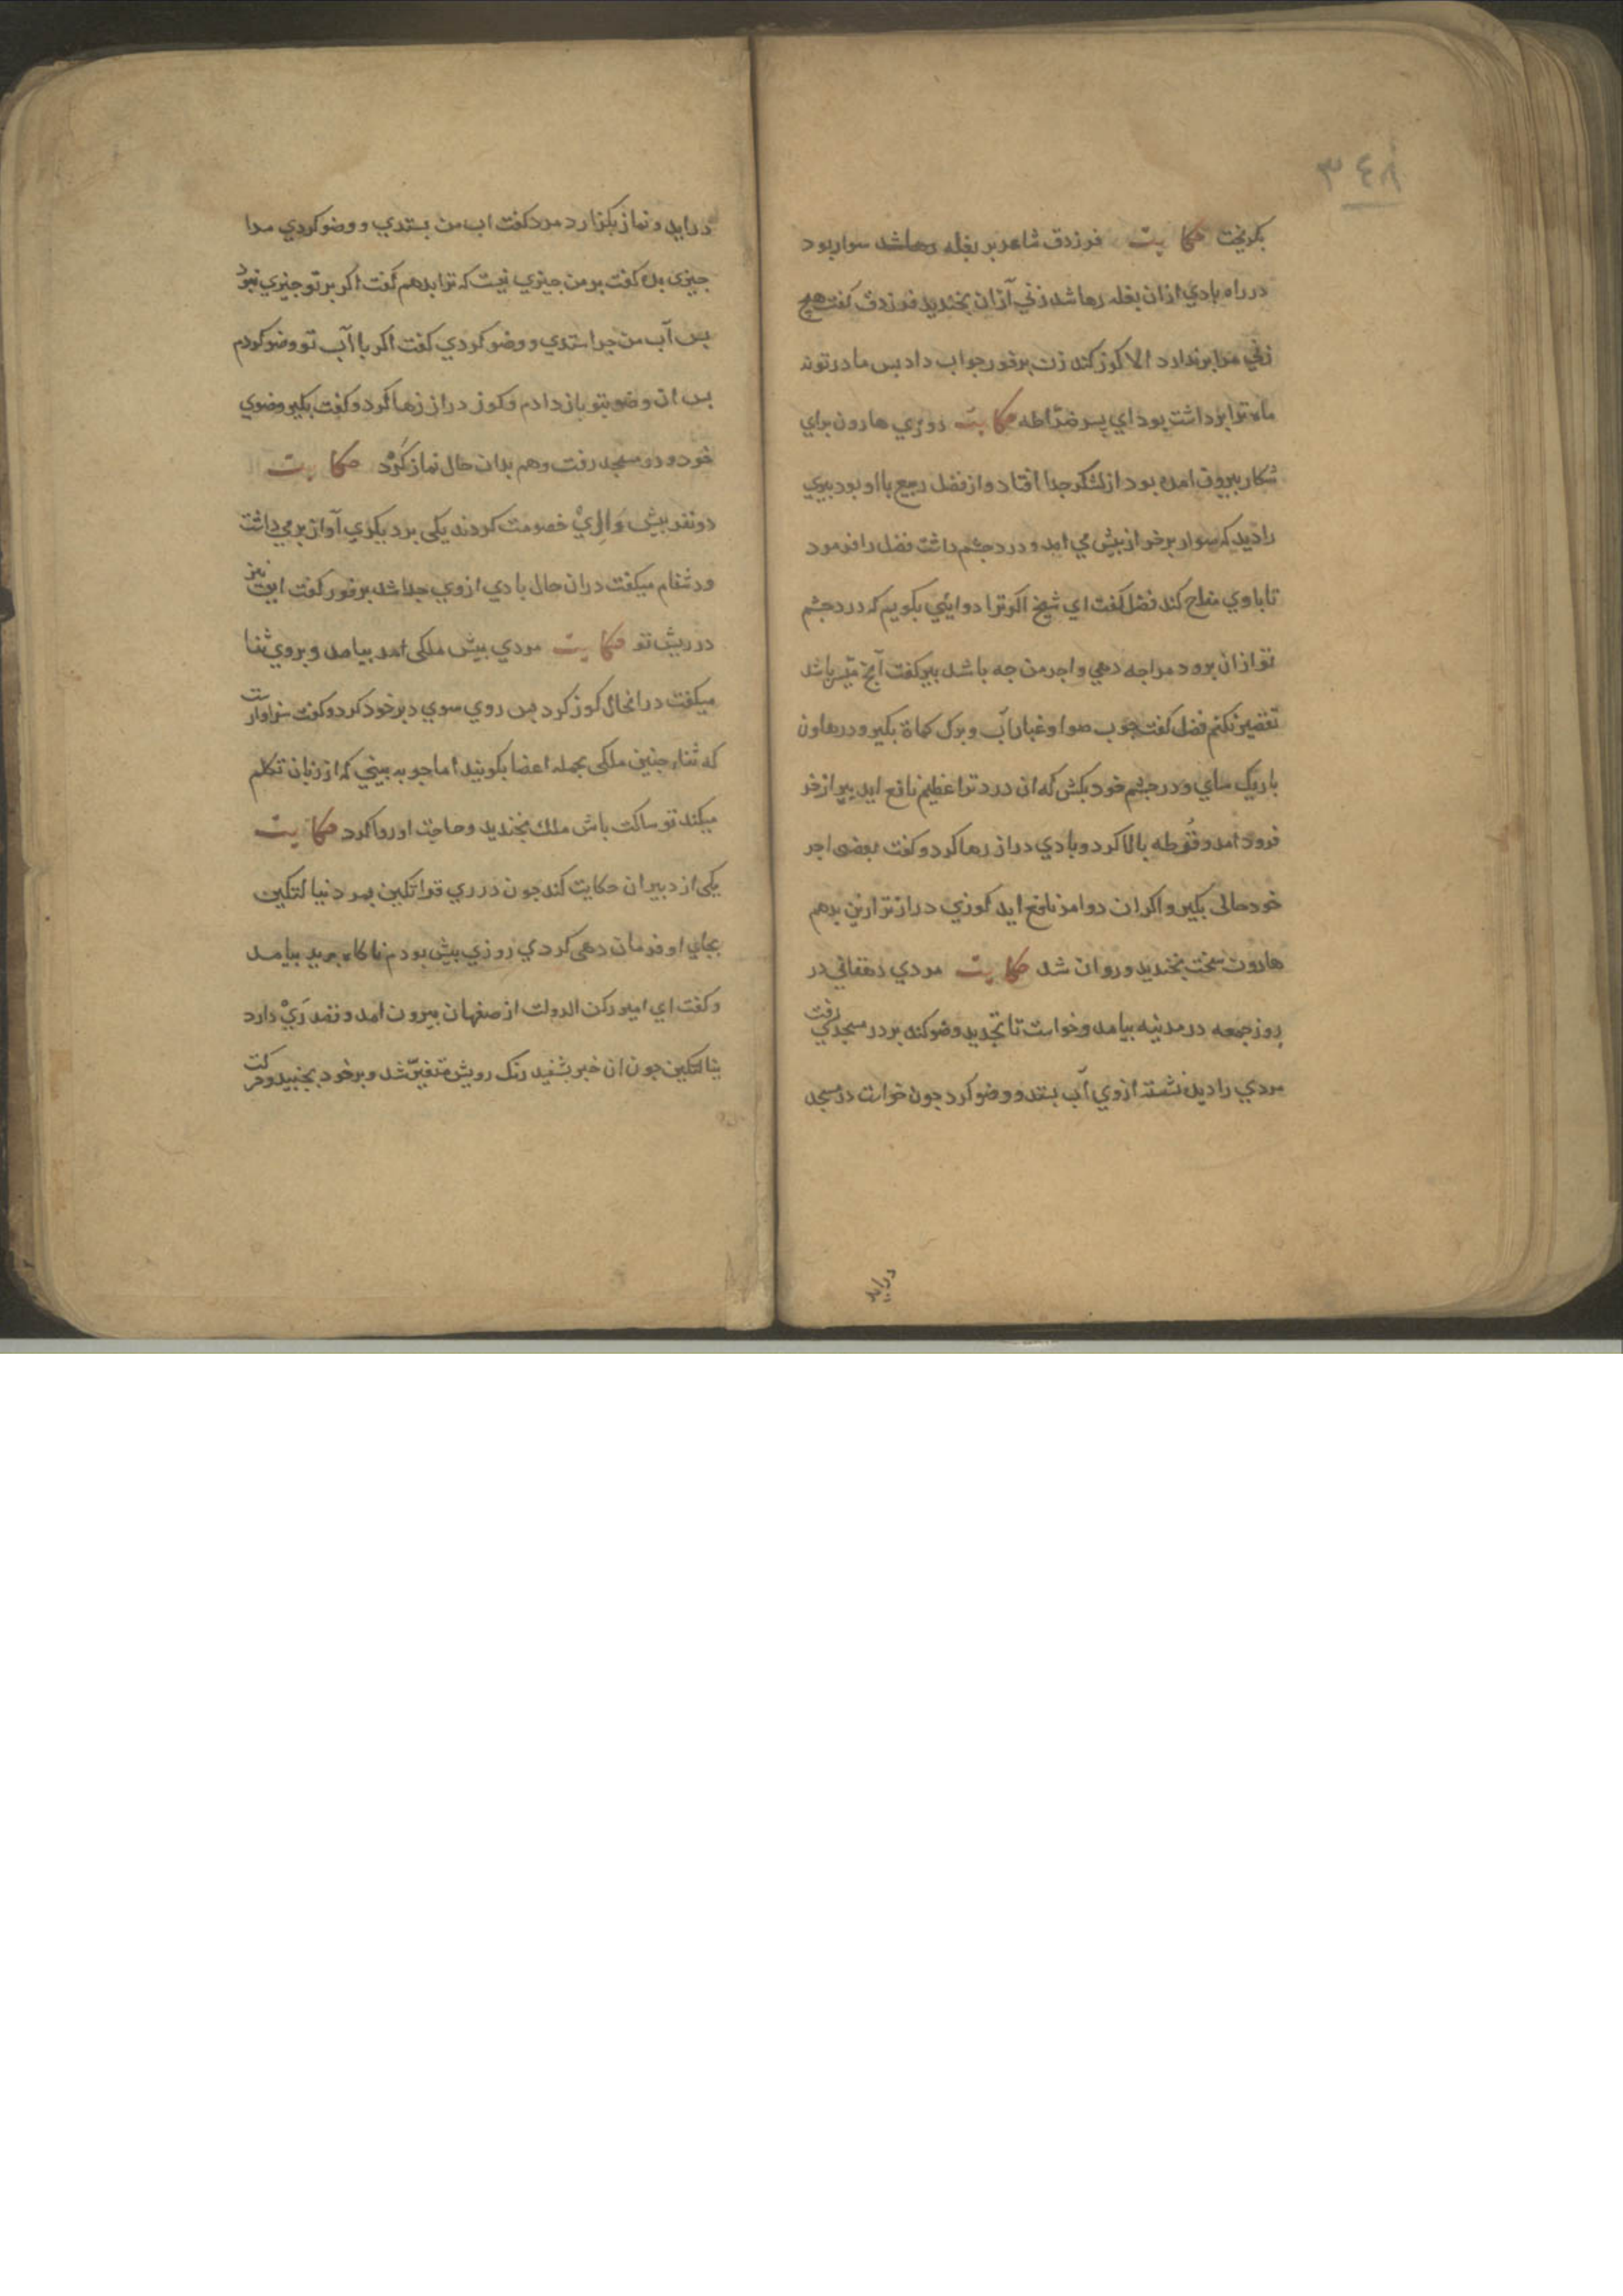 ٣٤٨
بکریخت حکایت فرزدق شاعر بر بغله رها شد سوار بود
در راه بادي ازان بغله رها شد زني آزان بخندید فرزدق کفت هیچ
زني مرا برندارد الا کوز کند زن برفور جواب داد بس مادر تو نه
ماه ترا برداشت بود اي پسر ضرّاطه حکایت روزي هارون براي
شکار بیرون امده بود از لشکر جدا افتاد و از فضل ربیع با او بود بیري
را دید که سوار بر خر از بیش مي امد و درد جشم داشت فضل را فرمود
تا باوي مزاح کند فضل کفت اي شیخ اکر ترا دوایئي بکویم که درد جشم
تو ازان برود مرا جه دهي و اجر من جه باشد بیر کفت آنج میسر باشد
تقصیر نکنم فضل کفت جوب هوا و غبار آب و برک کماة بکیر و در هاون
باریک ساي و در جشم خود بکش که ان درد ترا عظیم نافع اید بیر از خر
فرود امد و فُوطه بالا کرد و بادي دراز رها کرد و کفت بعضی اجر
خود حالی بکیر و اکر ان دوا مرا نافع اید کوزي دراز تر ازین بدهم
هارون سخت بخندید و روان شد حکایت مردي دهقاني در
روز جمعه در مدینه بیامد و خواست تا تجدید وضو کند بر در مسجدي رفت
مردي را دید نشسته ازوي آب بستد و وضو کرد جون خواست در مسجد
دراید
دراید و نماز بکزارد مرد کفت اب من بستدي و وضو کردي مرا
جیزی بده کفت بر من جیزي نیست که ترا بدهم کفت اکر بر تو جیزي نبود
بس آب من جرا ستدي و وضو کردي کفت اکر با آب تو وضو کردم
بس ان وضو بتو باز دادم و کوز دراز رها کرد و کفت بکیر وضوي
خود و در مسجد رفت و هم بدان حال نماز کرد حکایت
دو نفر بیش والِيْ خصومت کردند یکی بر دیکري آواز بر مي داشت
و دشنام میکفت دران حال بادي ازوي جدا شد برفور کفت این نیز
در ریش تو حکایت مردي بیش ملکی امد بیامد و بروي ثنا
میکفت درانحال کوز کرد بس روي سوي دبر خود کرد و کفت سزاوار ست
که ثناء جنین ملکی بجمله اعضا بکویند اما جو به بیني که از زبان تکلم
میکند تو ساکت باش ملک بخندید و حاجت او روا کرد حکایت
یکی از دبیران حکایت کند جون در ري قراتکین بمرد نیالتکین
بجاي او فرمان دهی کردي روزي بیش بودم ناکاه برید بیامد
و کفت اي امیر رکن الدولت از صفهان بیرون امد و قصد رَيْ دارد
ینالتکین جون ان خبر بشنید رنک رویش متغیّر شد و بر خود بجنبید و حرکت